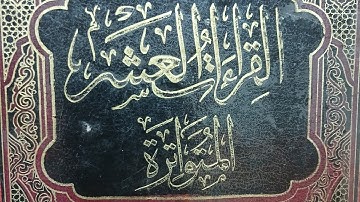 القِرَاءَاتُ العَشْرُ
المُتَوَاتِرَة